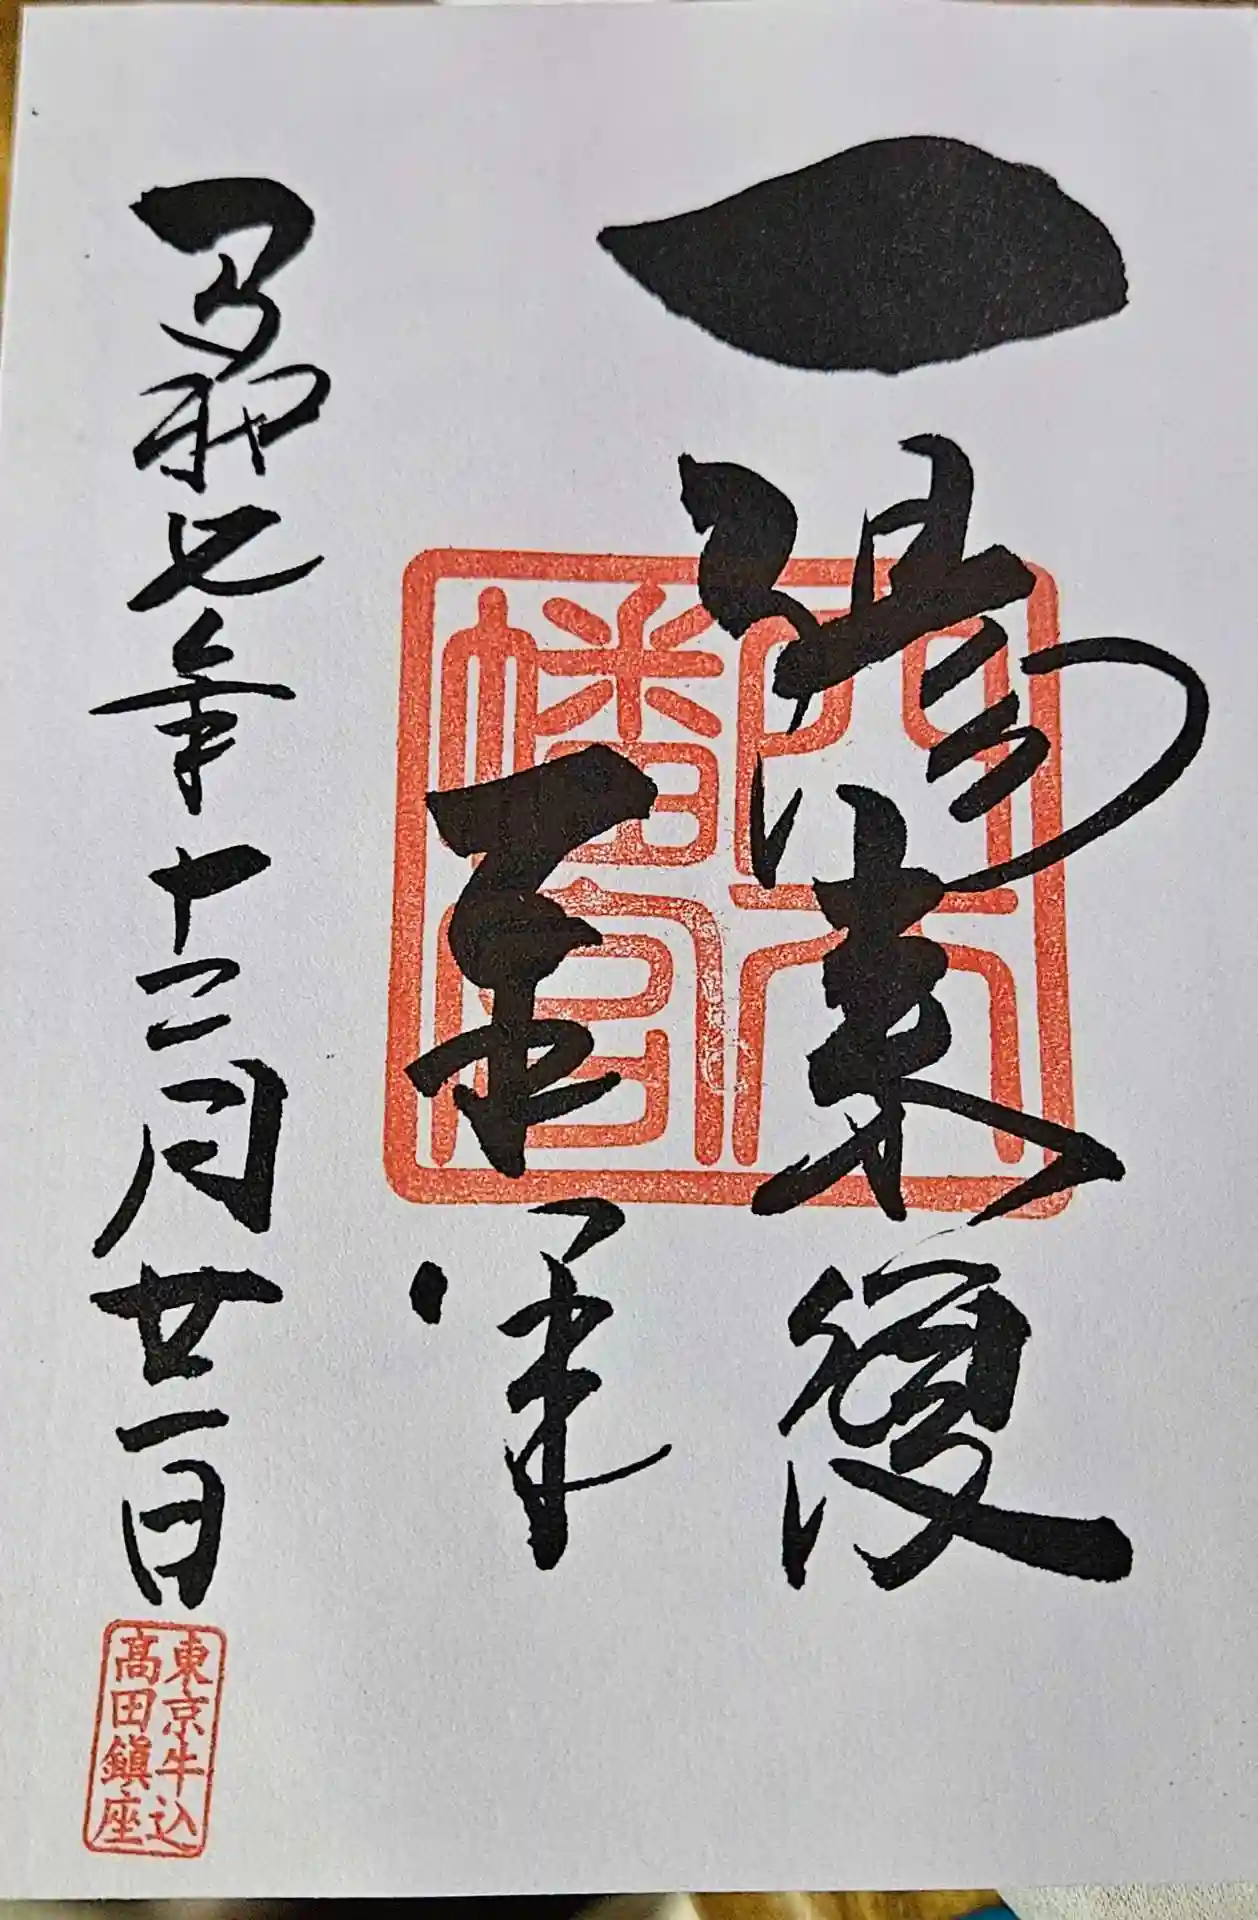 一陽来復
穴八
幡宮
令和七年十二月廿一日
東京牛込
高田鎭座